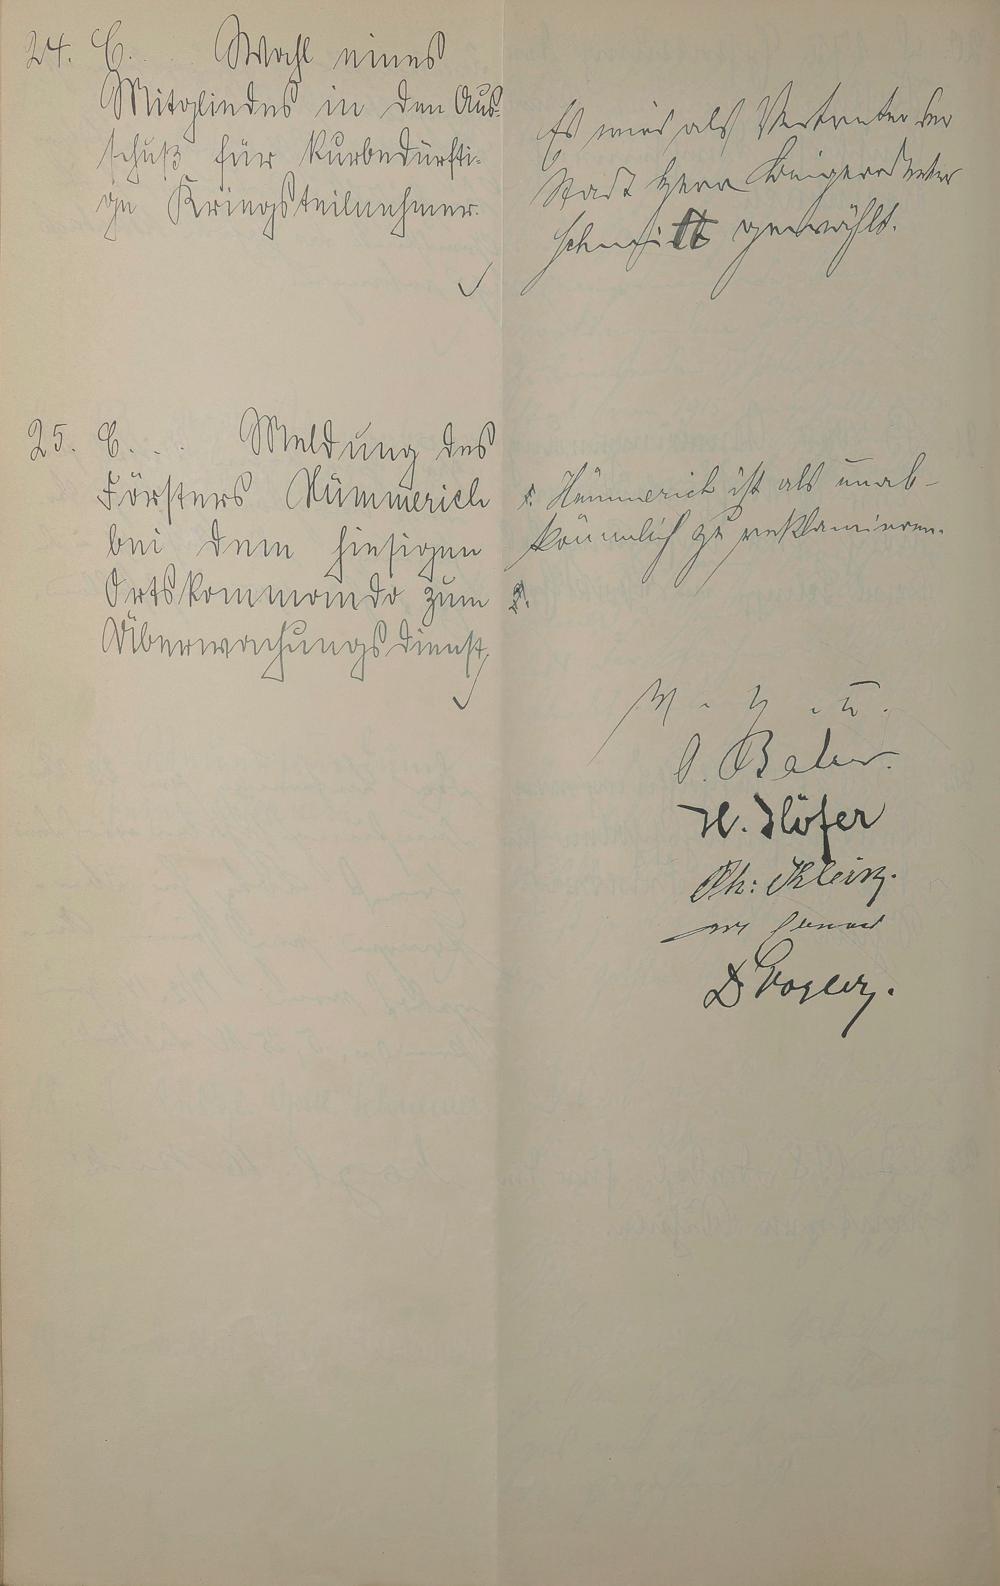 24. C. . . Wahl eines
Mitgliedes in den Aus-
schuß für kurbedürfti-
ge Kriegsteilnehmer.
Es wird als Vertreter der
Stadt Herr Beigeordneter
Schmitt gewählt.
25. C. . . Meldung des
Försters Hümmerich
bei dem hiesigen
Ortskommando zum
Überwachungsdienst.
Hümmerich ist als unab-
kömmlich zu reklamieren.
v. g. u.
H. Höfer
Ph: Klein.